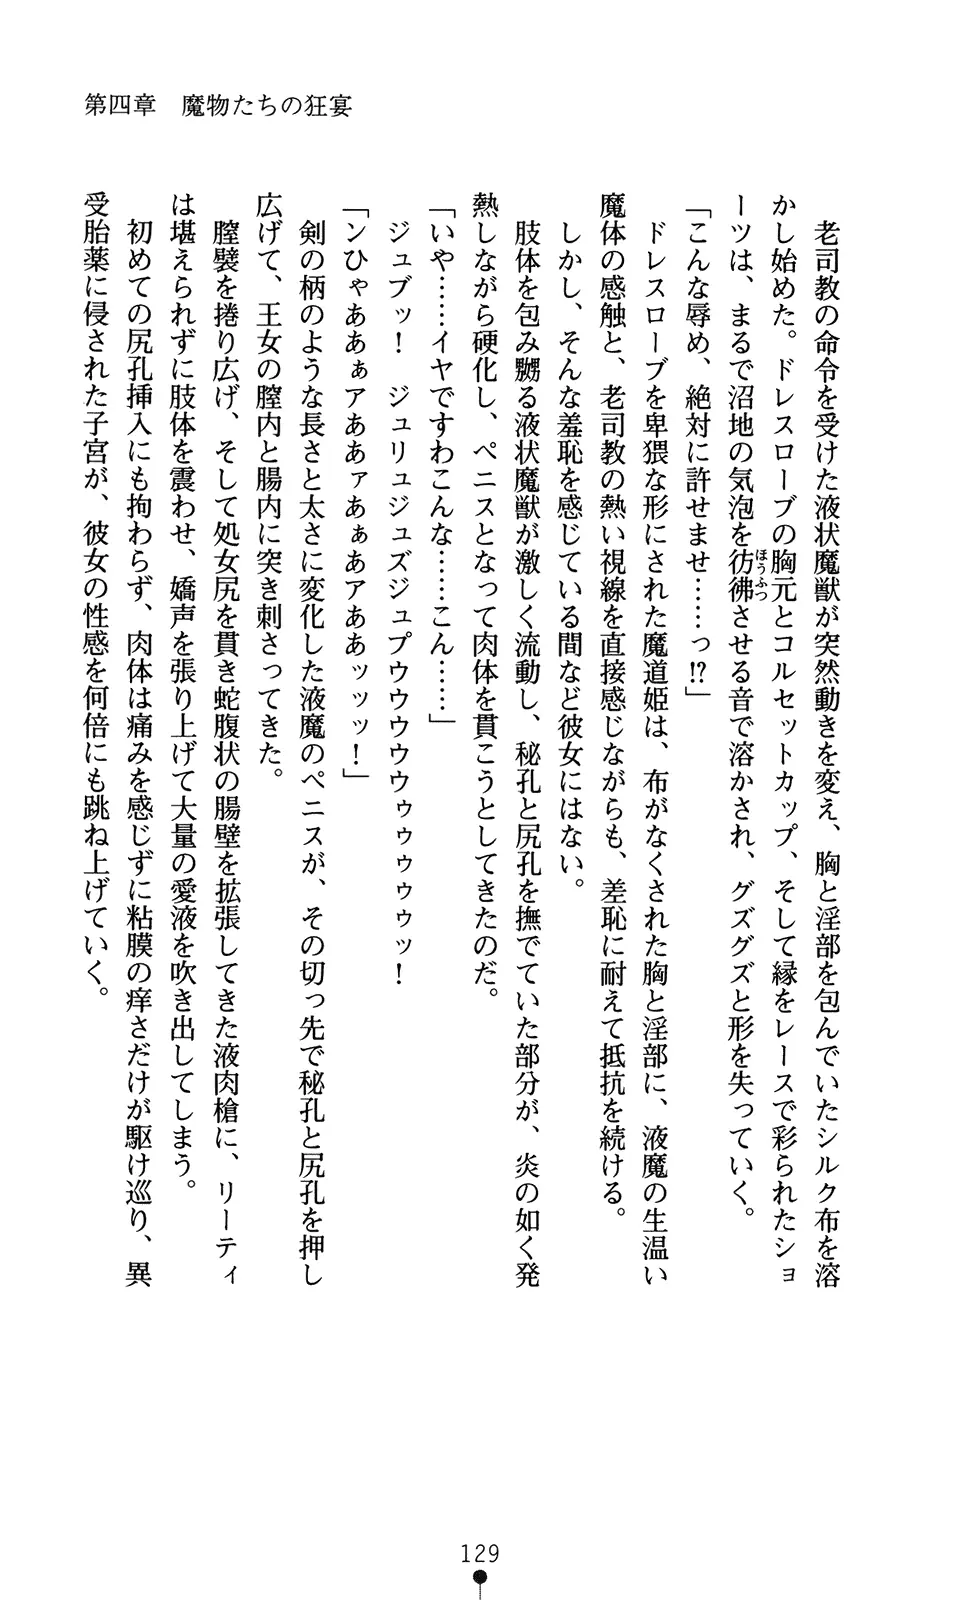 第四章　魔物たちの狂宴
　老司教の命令を受けた液状魔獣が突然動きを変え、胸と淫部を包んでいたシルク布を溶
かし始めた。ドレスローブの胸元とコルセットカップ、そして縁をレースで彩られたショ
ーツは、まるで沼地の気泡を彷彿ほうふつさせる音で溶かされ、グズグズと形を失っていく。
「こんな辱め、絶対に許せませ……っ!?」
　ドレスローブを卑猥な形にされた魔道姫は、布がなくされた胸と淫部に、液魔の生温い
魔体の感触と、老司教の熱い視線を直接感じながらも、羞恥に耐えて抵抗を続ける。
　しかし、そんな羞恥を感じている間など彼女にはない。
　肢体を包み嬲る液状魔獣が激しく流動し、秘孔と尻孔を撫でていた部分が、炎の如く発
熱しながら硬化し、ペニスとなって肉体を貫こうとしてきたのだ。
「いや……イヤですわこんな……こん……」
　ジュブッ！　ジュリュジュズジュプウウウウゥゥゥゥッ！
「ンひゃああぁアああァあぁあアああッッッ！」
　剣の柄のような長さと太さに変化した液魔のペニスが、その切っ先で秘孔と尻孔を押し
広げて、王女の膣内と腸内に突き刺さってきた。
　膣襞を捲り広げ、そして処女尻を貫き蛇腹状の腸壁を拡張してきた液肉槍に、リーティ
は堪えられずに肢体を震わせ、嬌声を張り上げて大量の愛液を吹き出してしまう。
　初めての尻孔挿入にも拘わらず、肉体は痛みを感じずに粘膜の痒さだけが駆け巡り、異
受胎薬に侵された子宮が、彼女の性感を何倍にも跳ね上げていく。
129